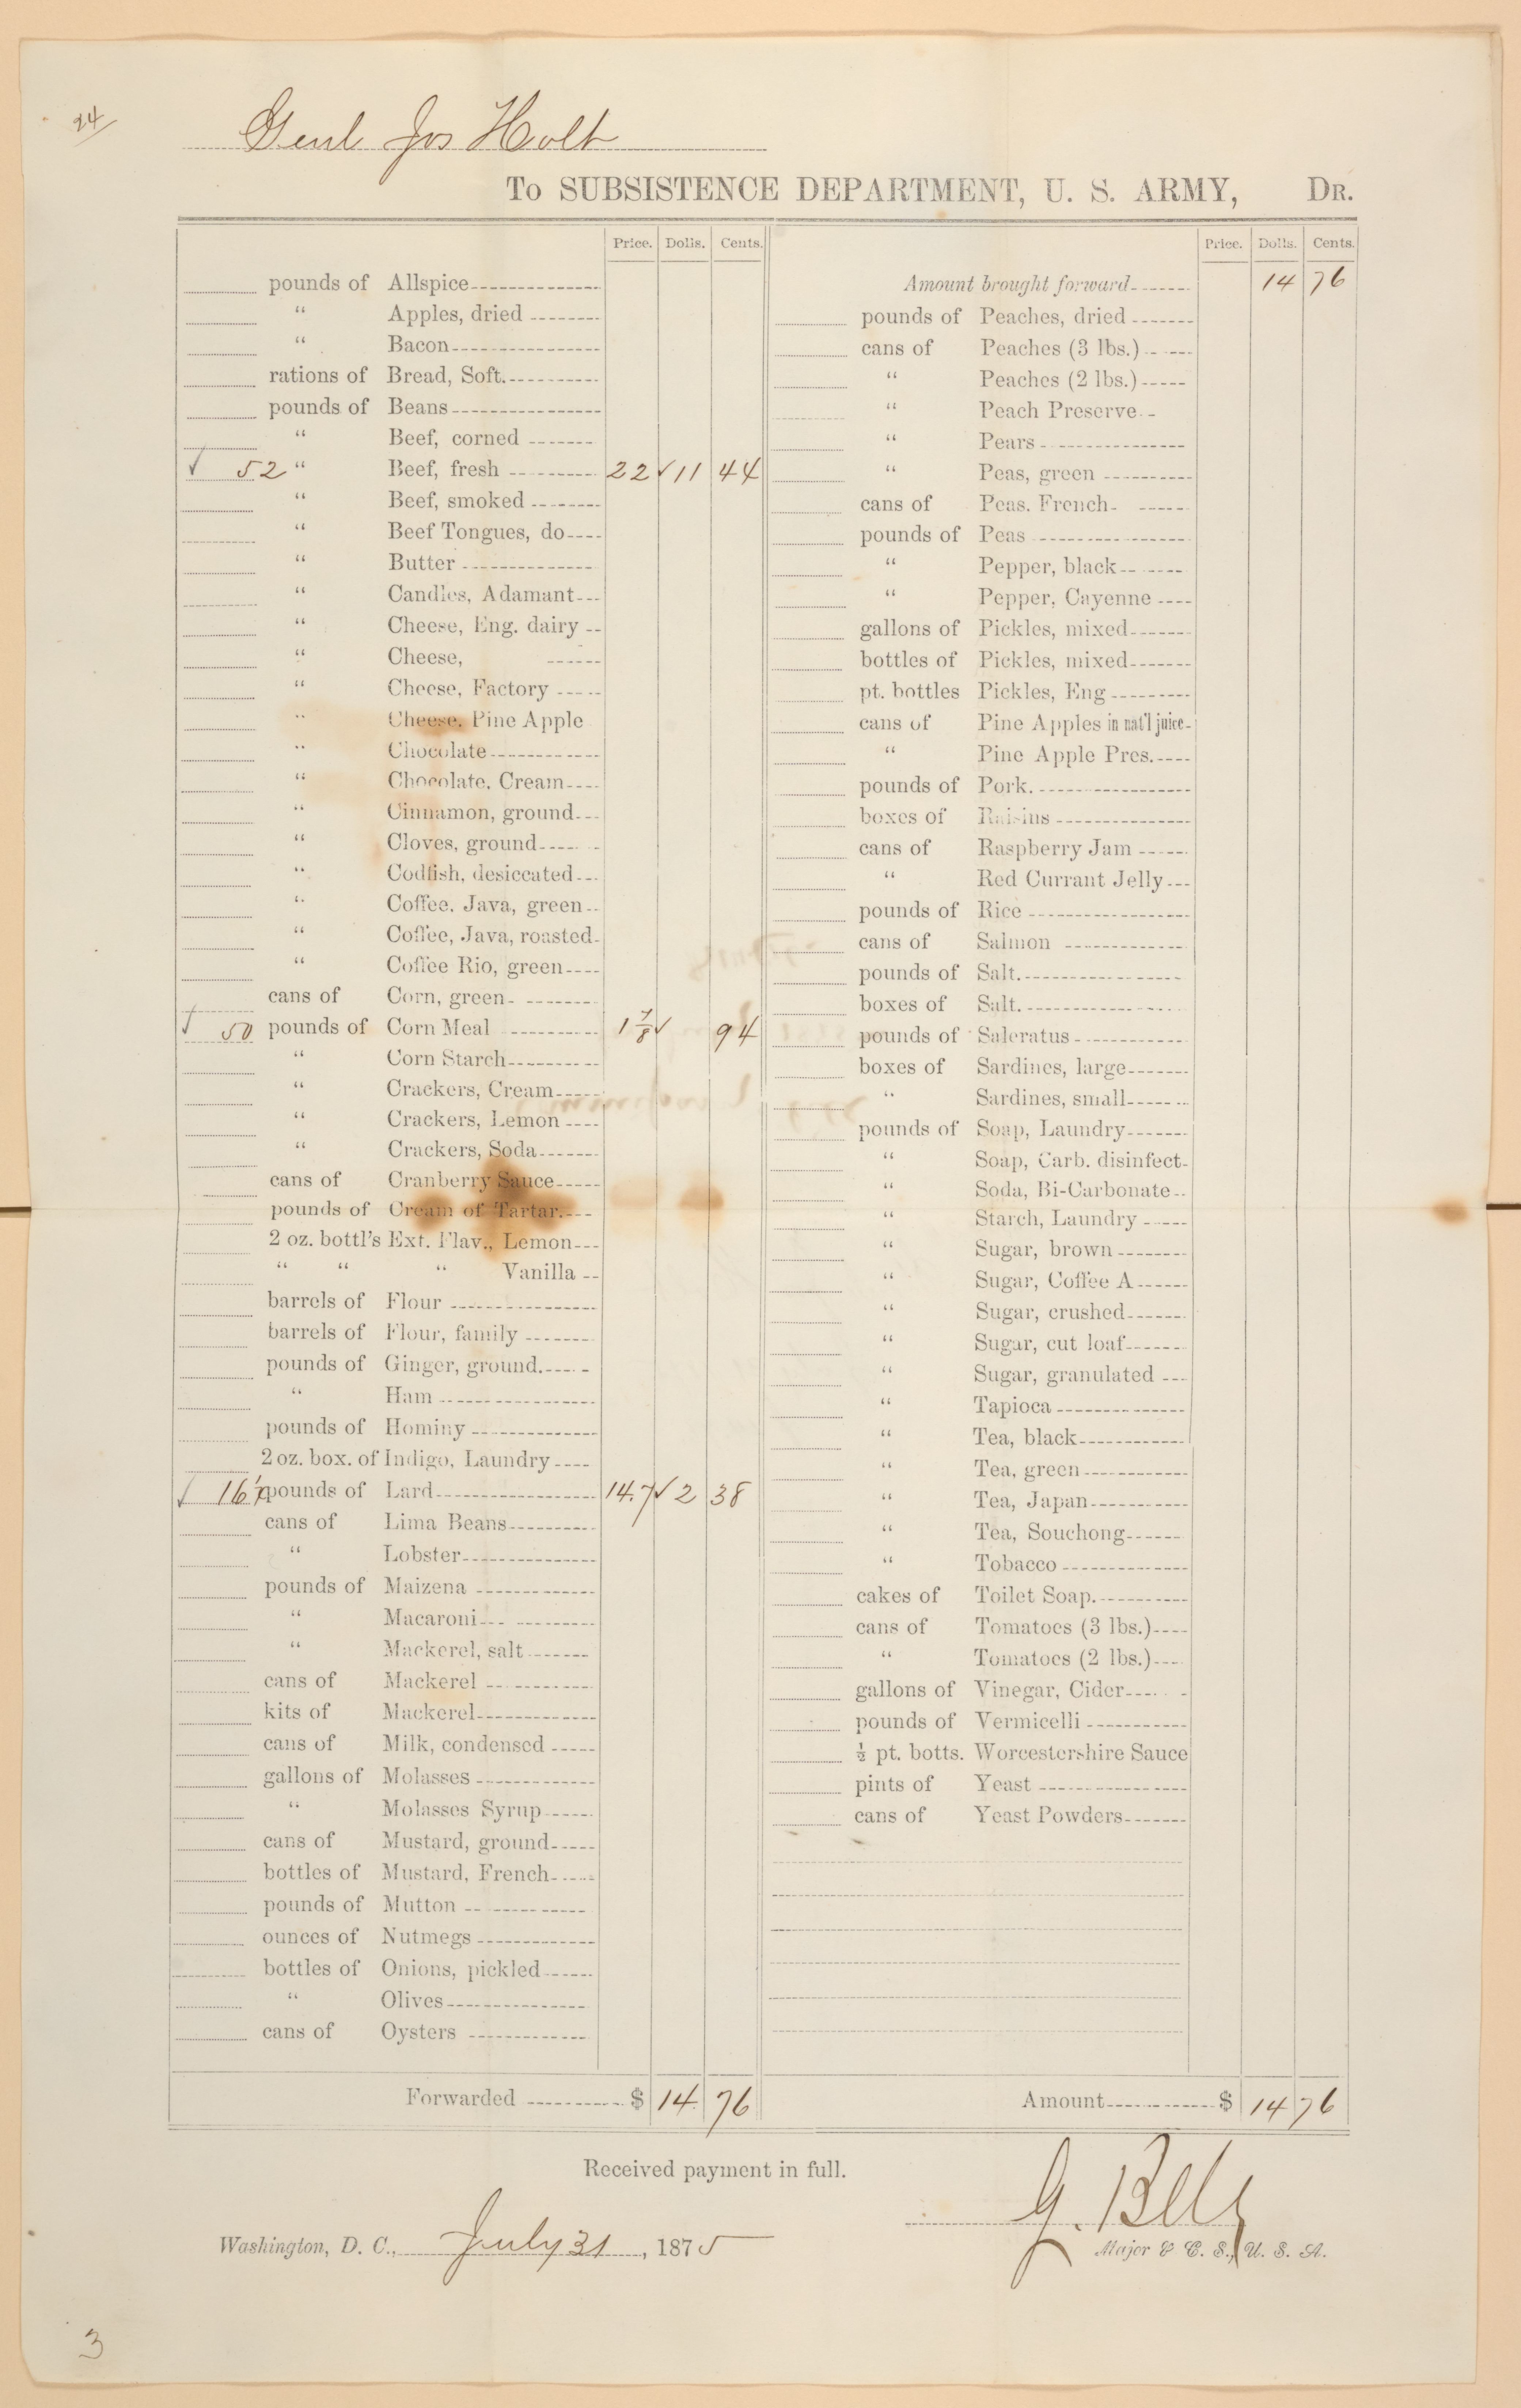 24/
Genl Jos Holt
To SUBSISTENCE DEPARTMENT, U. S. ARMY, DR.
Price. Dolls. Cents.
pounds of Allspice
" Apples, dried
" Bacon
rations of Bread, Soft.
pounds of Beans
" Beef, corned
✓ 52 " Beef, fresh 22 ✓ 11 44
" Beef, smoked
" Beef Tongues, do
" Butter
" Candles, Adamant
" Cheese, Eng. dairy
" Cheese,
" Cheese, Factory
" Cheese, Pine Apple
" Chocolate
" Chocolate, Cream
" Cinnamon, ground
" Cloves, ground
" Codfish, desiccated
" Coffee, Java, green
" Coffee, Java, roasted
" Coffee Rio, green
cans of Corn, green
✓ 50 pounds of Corn Meal 1 7/8 ✓ 94
" Corn Starch
" Crackers, Cream
" Crackers, Lemon
" Crackers, Soda
cans of Cranberry Sauce
pounds of Cream of Tartar.
2 oz. bottl's Ext. Flav., Lemon
" " " Vanilla
barrels of Flour
barrels of Flour, family
pounds of Ginger, ground.
" Ham
pounds of Hominy
2 oz. box. of Indigo, Laundry
✓ 16 pounds of Lard 14.7 ✓ 2 38
cans of Lima Beans
" Lobster
pounds of Maizena
" Macaroni
" Mackerel, salt
cans of Mackerel
kits of Mackerel
cans of Milk, condensed
gallons of Molasses
" Molasses Syrup
cans of Mustard, ground
bottles of Mustard, French
pounds of Mutton
ounces of Nutmegs
bottles of Onions, pickled
" Olives
cans of Oysters
Forwarded $ 14 76
Price. Dolls. Cents.
Amount brought forward 14 76
pounds of Peaches, dried
cans of Peaches (3 lbs.)
" Peaches (2 lbs.)
" Peach Preserve
" Pears
" Peas, green
cans of Peas. French
pounds of Peas
" Pepper, black
" Pepper, Cayenne
gallons of Pickles, mixed
bottles of Pickles, mixed
pt. bottles Pickles, Eng
cans of Pine Apples in nat'l juice
" Pine Apple Pres.
pounds of Pork.
boxes of Raisins
cans of Raspberry Jam
" Red Currant Jelly
pounds of Rice
cans of Salmon
pounds of Salt.
boxes of Salt.
pounds of Saleratus
boxes of Sardines, large
" Sardines, small
pounds of Soap, Laundry
" Soap, Carb. disinfect
" Soda, Bi-Carbonate
" Starch, Laundry
" Sugar, brown
" Sugar, Coffee A
" Sugar, crushed
" Sugar, cut loaf
" Sugar, granulated
" Tapioca
" Tea, black
" Tea, green
" Tea, Japan
" Tea, Souchong
" Tobacco
cakes of Toilet Soap.
cans of Tomatoes (3 lbs.)
" Tomatoes (2 lbs.)
gallons of Vinegar, Cider
pounds of Vermicelli
½ pt. botts. Worcestershire Sauce
pints of Yeast
cans of Yeast Powders
Amount $ 14 76
Received payment in full.
G. Bell
Washington, D. C., July 31, 1875
Major & C. S., U. S. A.
3